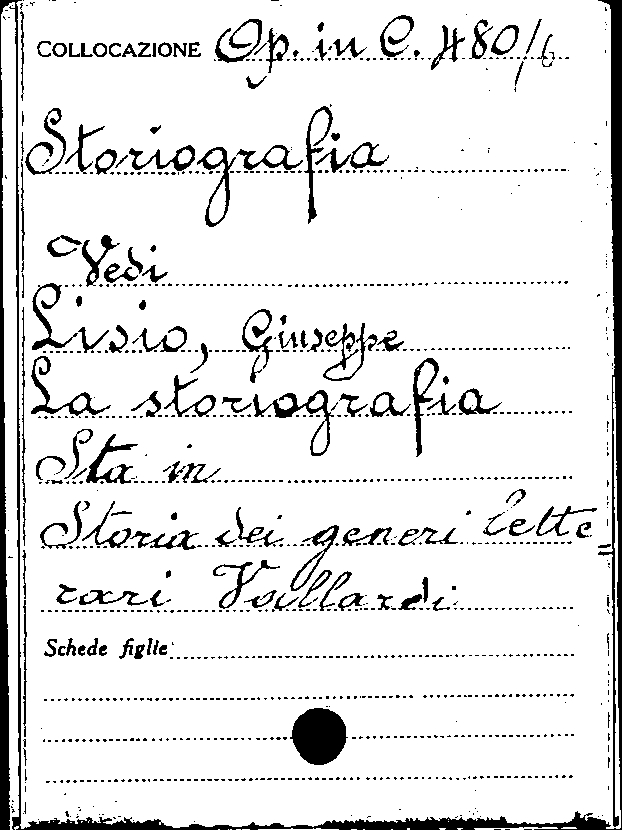 COLLOCAZIONE Op. in C. 480/6
Storiografia
Vedi
Lisio, Giuseppe
La storiografia
Sta in
Storia dei generi lette=
rari Vallardi
Schede figlie: